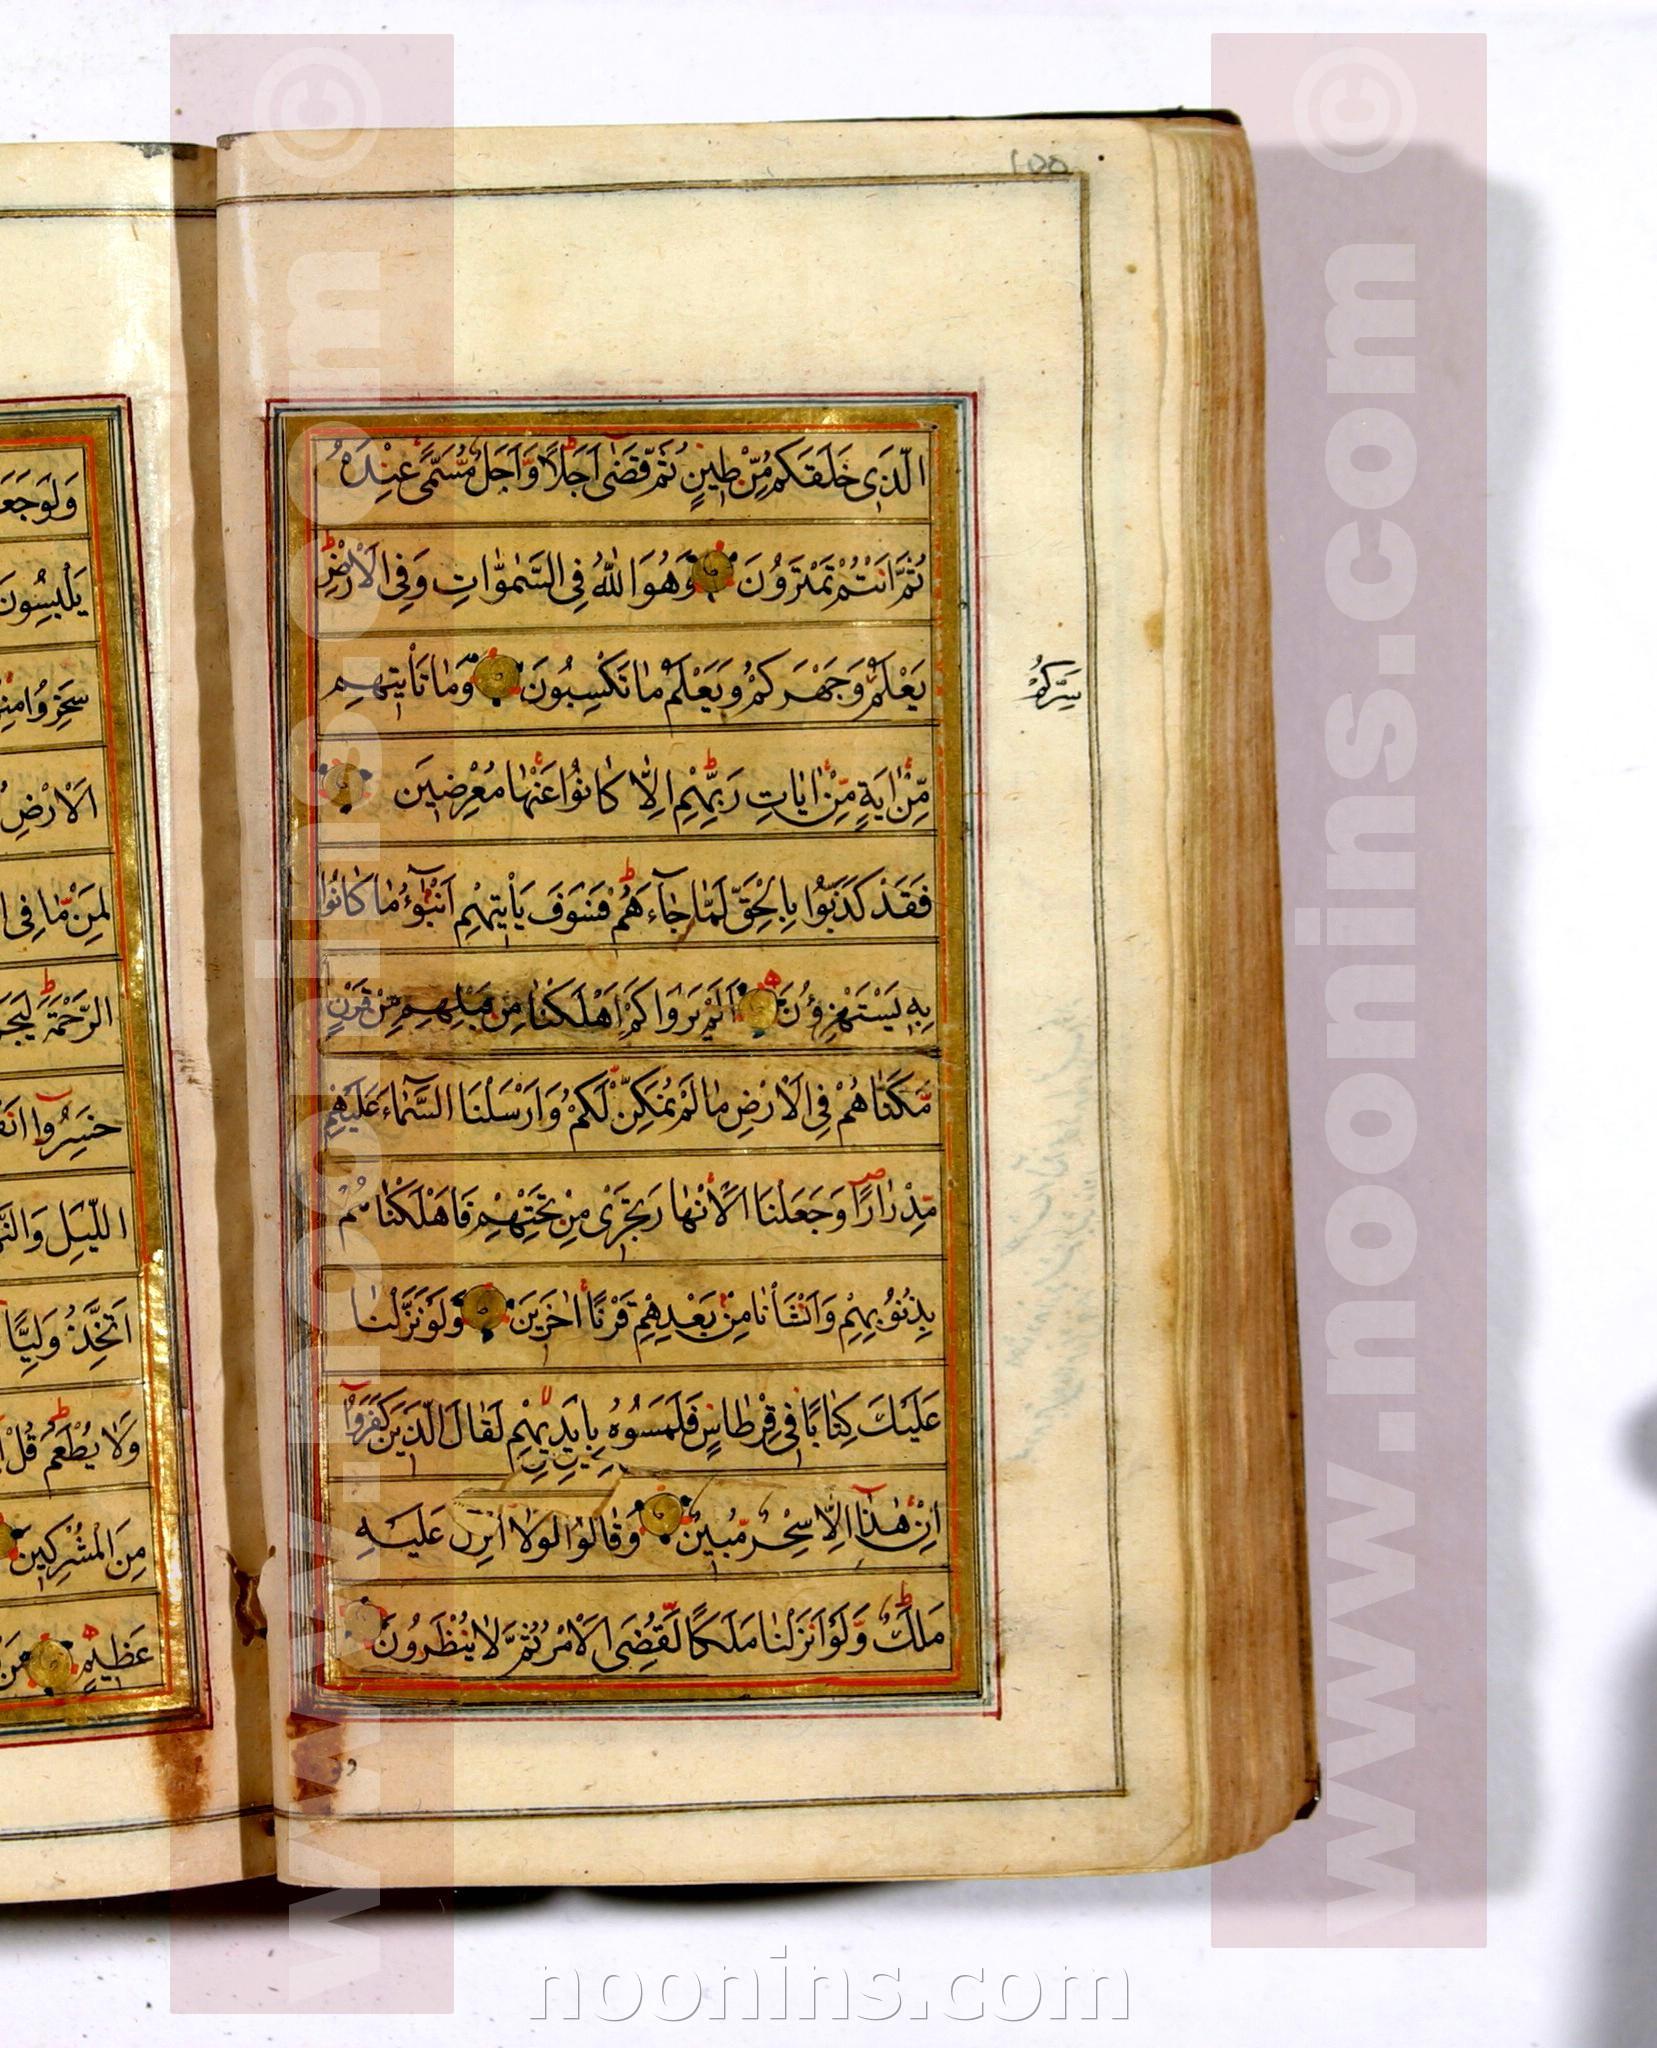 الَّذِي خَلَقَكُمْ مِّنْ طِينٍ ثُمَّ قَضَىٰ اَجَلًا وَّاَجَلٌ مُّسَمًّى عِنْدَهُ
ثُمَّ اَنْتُمْ تَمْتَرُونَ وَهُوَ اللّٰهُ فِي السَّمٰوَاتِ وَفِي الْاَرْضِ
يَعْلَمُ وَجَهْرَكُمْ وَيَعْلَمُ مَا تَكْسِبُونَ وَمَا تَأْتِيهِمْ
سِرَّكُمْ
مِّنْ اٰيَةٍ مِّنْ اٰيَاتِ رَبِّهِمْ اِلَّا كَانُوا عَنْهَا مُعْرِضِينَ
فَقَدْ كَذَّبُوا بِالْحَقِّ لَمَّا جَآءَهُمْ فَسَوْفَ يَأْتِيهِمْ اَنْبٰٓؤُا مَا كَانُوا
بِهِ يَسْتَهْزِؤُنَ اَلَمْ يَرَوْا كَمْ اَهْلَكْنَا مِنْ قَبْلِهِمْ مِّنْ قَرْنٍ
مَّكَّنَّاهُمْ فِي الْاَرْضِ مَا لَمْ نُمَكِّنْ لَّكُمْ وَاَرْسَلْنَا السَّمَآءَ عَلَيْهِمْ
مِّدْرَارًا وَجَعَلْنَا الْاَنْهَارَ تَجْرِي مِنْ تَحْتِهِمْ فَاَهْلَكْنَاهُمْ
بِذُنُوبِهِمْ وَاَنْشَأْنَا مِنْ بَعْدِهِمْ قَرْنًا اٰخَرِينَ وَلَوْ نَزَّلْنَا
عَلَيْكَ كِتَابًا فِي قِرْطَاسٍ فَلَمَسُوهُ بِاَيْدِيهِمْ لَقَالَ الَّذِينَ كَفَرُوا
اِنْ هٰذَا اِلَّا سِحْرٌ مُّبِينٌ وَقَالُوا لَوْلَا اُنْزِلَ عَلَيْهِ
مَلَكٌ وَّلَوْ اَنْزَلْنَا مَلَكًا لَّقُضِيَ الْاَمْرُ ثُمَّ لَا يُنْظَرُونَ
وَلَوْ جَعَ
يَلْبِسُونَ
سَخِرُوا مِنْ
الْاَرْضِ
لِمَنْ مَّا فِي ا
الرَّحْمَةَ لَيَجْ
خَسِرُوآ اَنْفُ
اللَّيْلِ وَالنَّ
اَتَّخِذُ وَلِيًّا
وَلَا يُطْعَمُ قُلْ
مِنَ الْمُشْرِكِينَ
عَظِيمٍ مَنْ
www.noonins.com ©
www.noonins.com ©
noonins.com